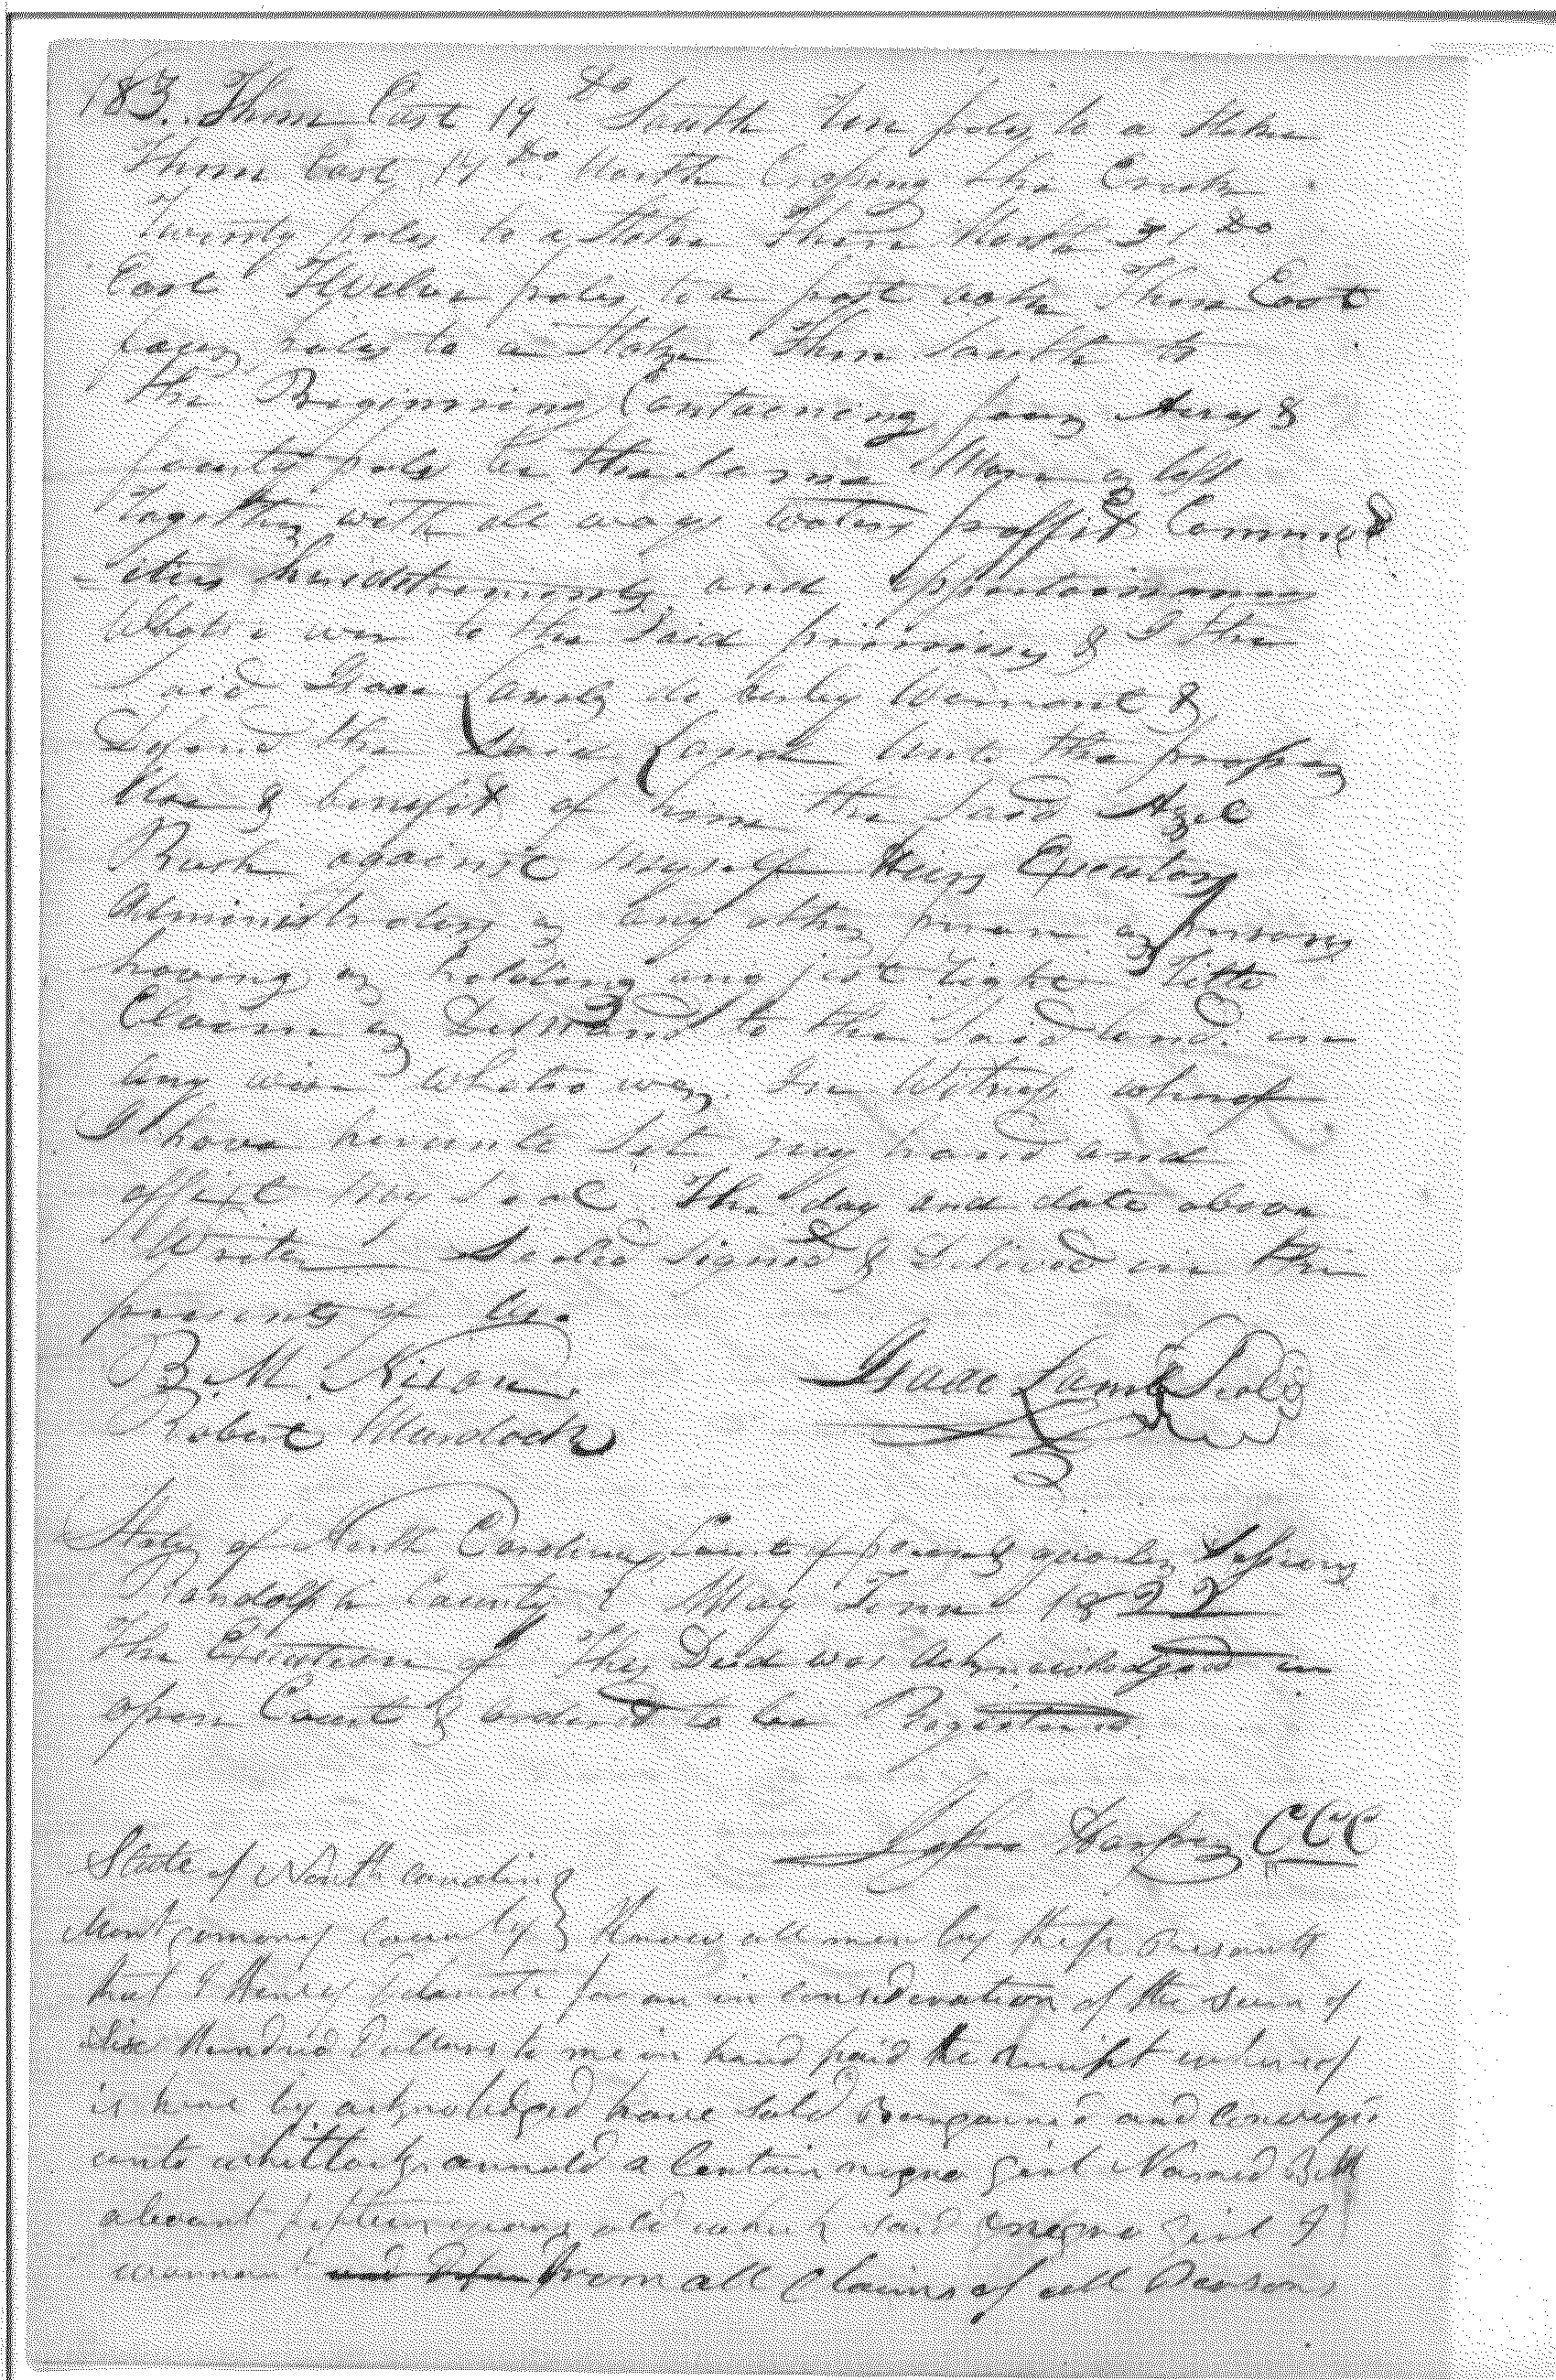 183. Thenc East 19 Do South ten poles to a Stake
Thenc East 14 Do North Crossing the Creek
Twenty poles to a Stake Thenc North 31 Do
East Twelve poles to a post oake Thenc East
four poles to a Stake Thenc South to
the Beginning Containing four Acres &
poles be the Same More or less
Together with all ways waters proffits Commod
-ities hereditaments and Appertainances
Whatso ever to the Said premises & I the
Said Isaac Lamb do hereby Warrant &
Defend the Said Land unto the proper
Use & benefit of him the Said Azel
Rush against myself Heirs Executors
Administrators or any other person or persons
having or holding any just right Title
Claim or Demand to the Said land in
any wise whatso ever. In Witness whereof
I have hereunto Set my hand and
affixt my Seal The day and date above
Writen Sealed Signed & Delived in the
presents of us.
B. M. Nixon
Robert Murdock
Isaac Lamb Seal
State of North Carolina Court of pleas & quarter Sessions
Randolph County May Term 1822
The Execution of this Deed was Acknowledged in
open Court & ordered to be Registered
Jesse Harper CCC
State of North Carolina
Montgomery County } Know all men by these Presents
that I Henry for an in Consideration of the sum of
Six Hundred Dollars to me in hand paid the receipt whereof
is here by acknoledged have Sold Bargained and
unto Whitlock Arnold a Certain negro Girl Named
about fifteen years old which said negro Girl I
warrant from all Claims of all Persons